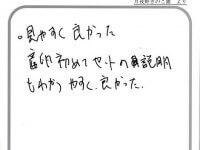 。見やすく良かった
初めてセットの説明
もわかりやすく、良かった。